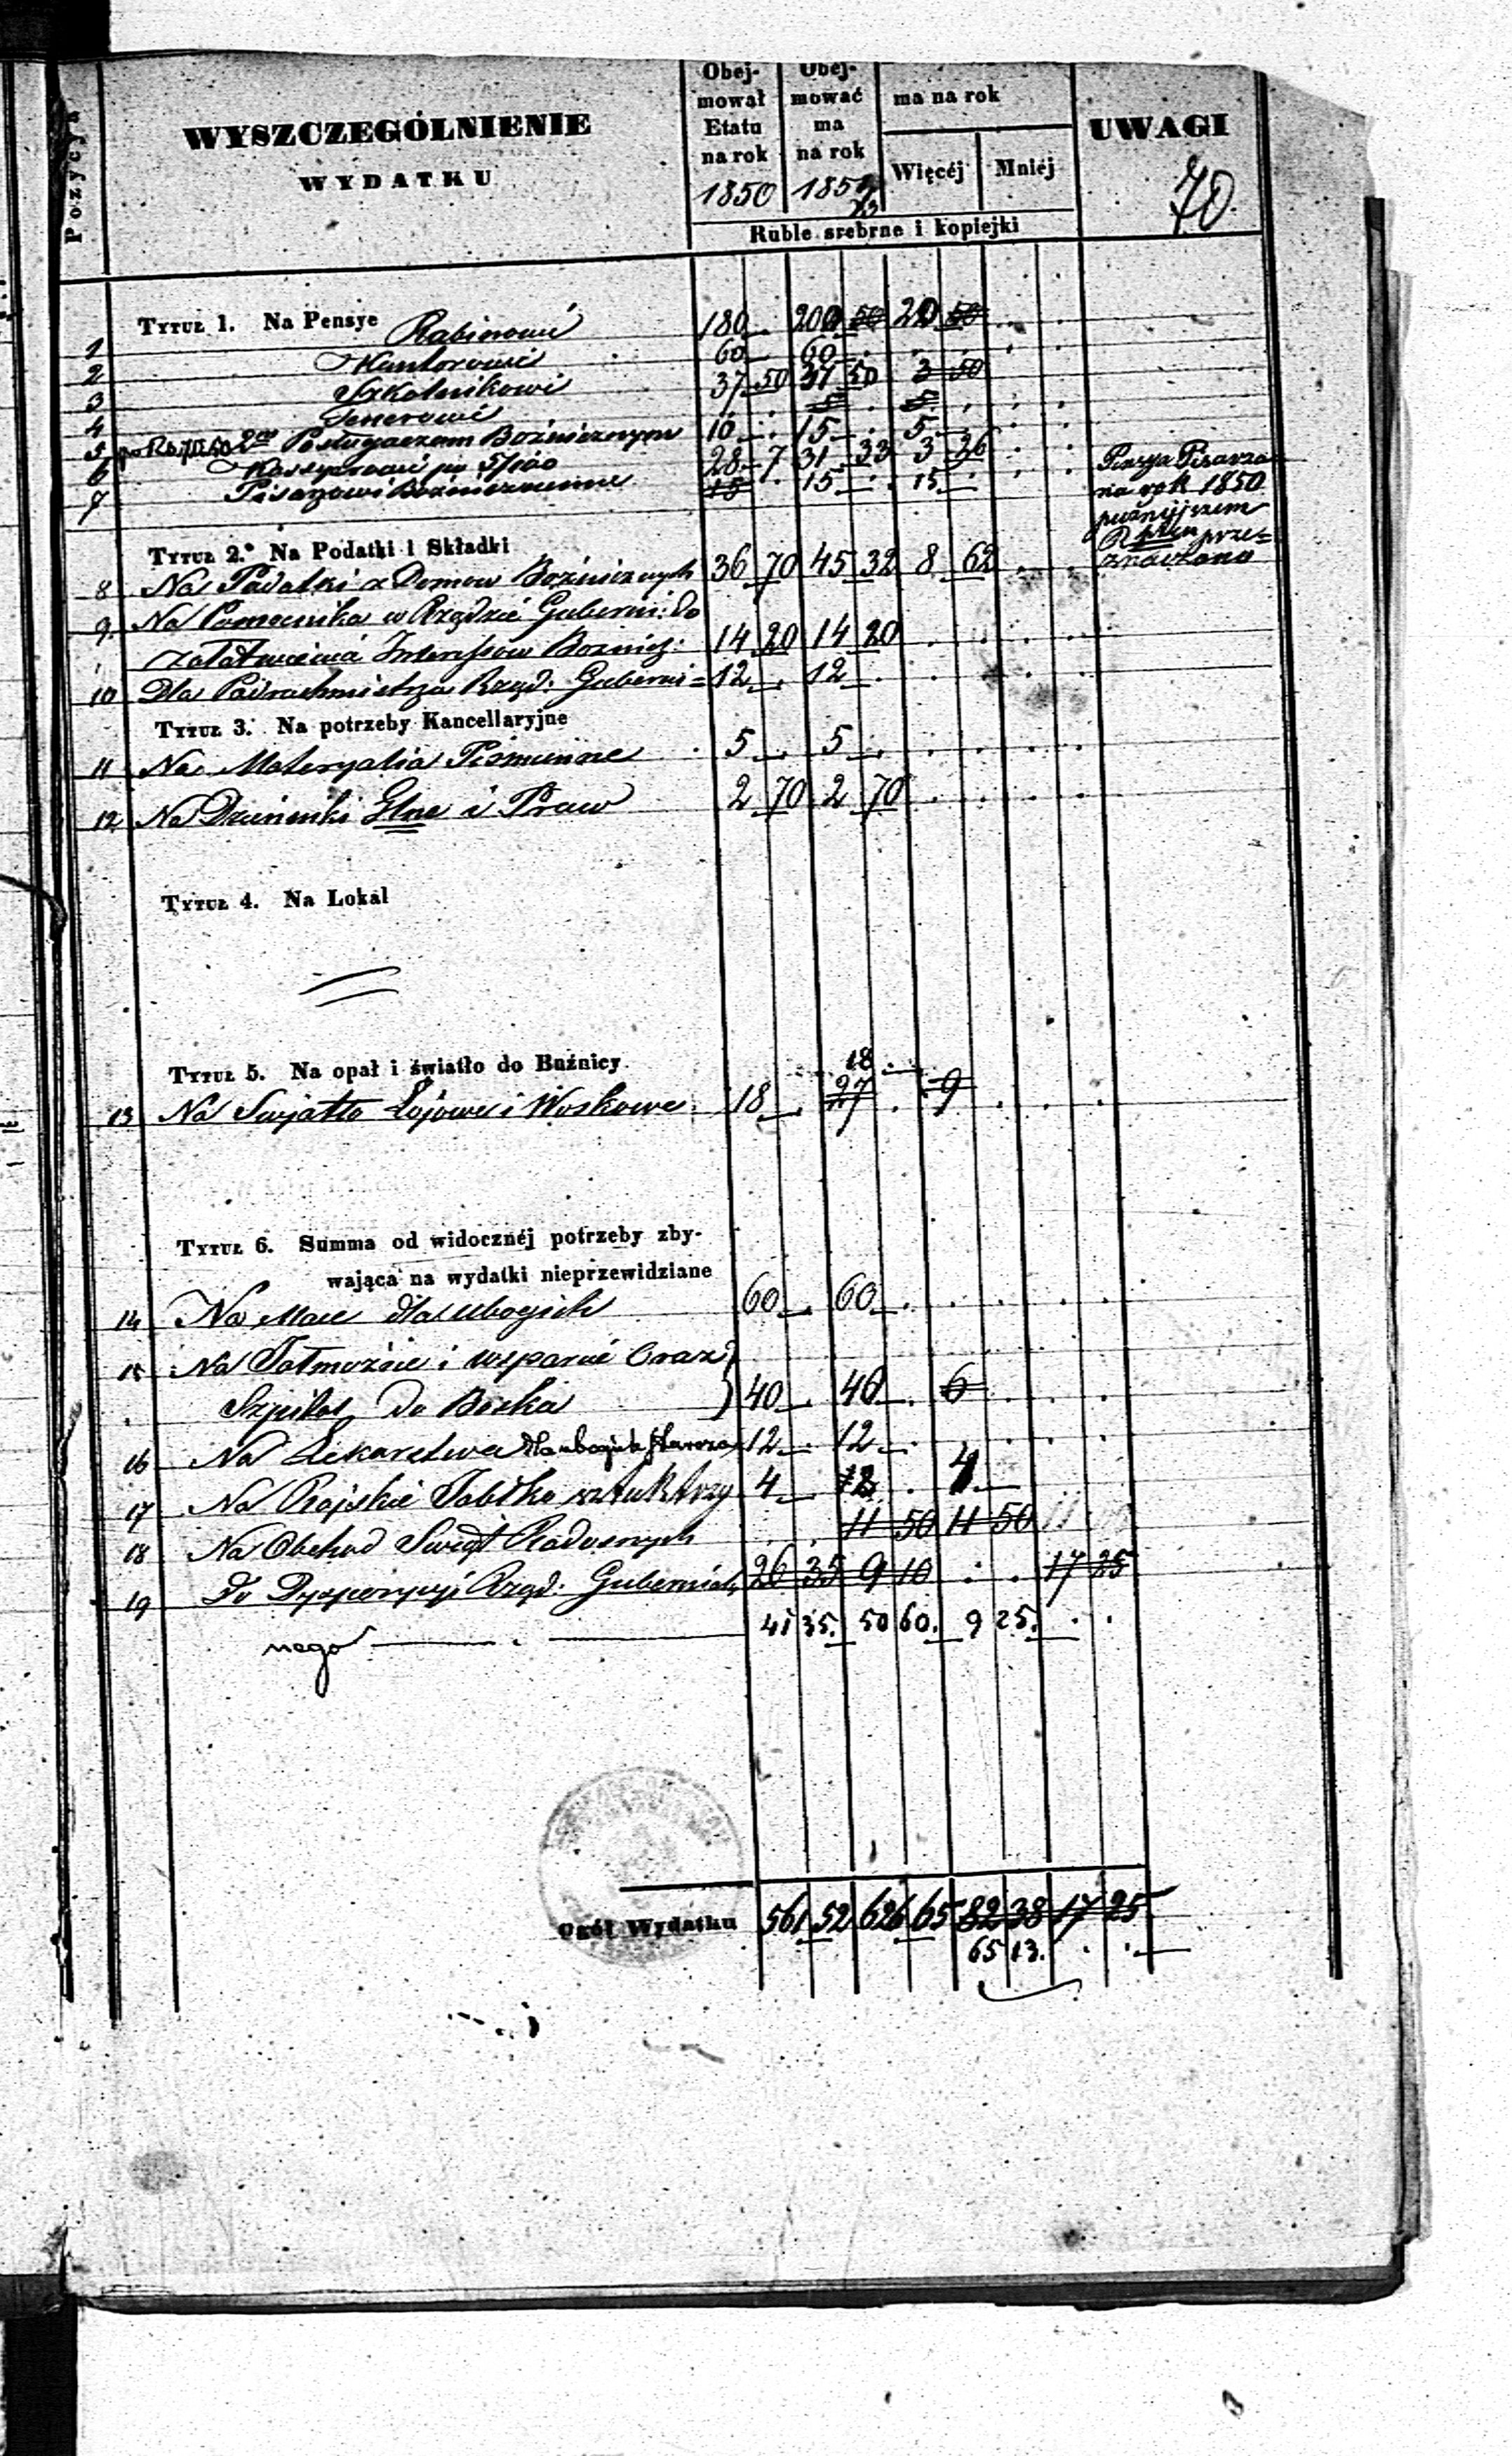 Pozycya
WYSZCZEGÓLNIENIE
WYDATKU
Obej-
mował
Etatu
na rok
1850
Obej-
mować
ma
na rok
185
ma na rok
Więcéj Mniéj
UWAGI
70.
Ruble srebrne i kopiejki
Tytuł 1. Na Pensye
1 Rabinowi 180 . 200 50 20 50
2 Kantorowi 60 . 60 .
3 Szkolnikowi 37 50 37 50 3 50
4 5
5 2m Posługaczom Bożnicznym 10 . 15 . 5 .
6 Kassyerowi po 5/100 28 7 31 33 3 26
7 Pisarzowi Bożnicznemu 15 . 15 . 15
Pensya Pisarza
na rok 1850
prze=
znaczono
Tytuł 2. Na Podatki i Składki
8 Na Podatki z Domow Bożnicznych 36 70 45 32 8 62
9. Na Pomocnika w Rządzie Gubern: do
załatwienia Interessow Boznicz: 14 20 14 20
10 Dla Podrachmistrza Rząd: Guberni= 12 . 12 .
Tytuł 3. Na potrzeby Kancellaryjne
11 Na Materyalia Pismienne 5 . 5 .
12 Na Dzienniki Glne i Praw 2 70 2 70
Tytuł 4. Na Lokal
Tytuł 5. Na opał i światło do Buźnicy
18 .
13 Na Swjatło Łojowe i Woskowe 18 . 27 . 9
Tytuł 6. Summa od widocznéj potrzeby zby-
wająca na wydatki nieprzewidziane
14 Na Mace dla ubogich 60 . 60 .
15 Na Jałmożnie i wsparcie Oraz
Szpital do Boćka 40 . 40 . 6
16 Na Lekarstwa dla ubogich 12 . 12 .
17 Na Rajskie Jabłka sztuk trzy 4 . .
18 Na Obchod Swiąt Radosnych 11 50 11 50
19 Do Dyspozycyi Rząd: Gubernial 26 35 9 10 . . 17 25
nego 41 35. 50 60. 9 25. . .
Ogół Wydatku 561 52 626 65 82 38 17 25
65 13. . .